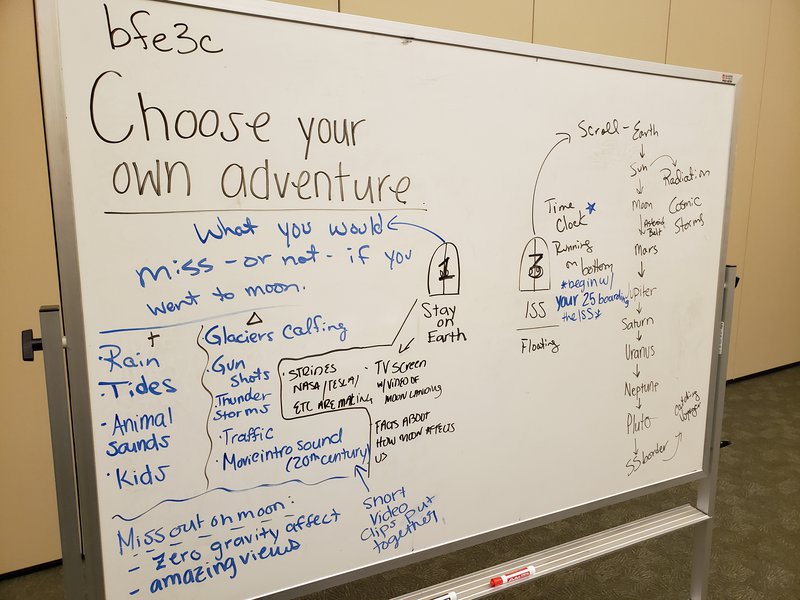 bfe3c
Choose your
own adventure
What you would
miss - or not - if you
went to moon.
†
· Rain
· Tides
· Animal
sounds
· Kids
Δ
Glaciers calfing
· Gun
shots
Thunder
storms
· Traffic
· Movie intro sound
(20th century)
Miss out on moon:
- zero gravity affect
- amazing views
1
Stay
on
Earth
· STRIDES
NASA/TESLA/
ETC ARE MAKING
· TV SCREEN
W/VIDEO OF
MOON LANDING
FACTS ABOUT
HOW MOON AFFECTS
US
short
video
clips put
together
3
ISS
Floating
Time
Clock
Running
on
bottom
*begin w/
your 25 boarding
the ISS*
Scroll - Earth
Sun
Radiation
Cosmic
Storms
Moon
Asteroid
Belt
Mars
Jupiter
Saturn
Uranus
Neptune
Pluto
SS border